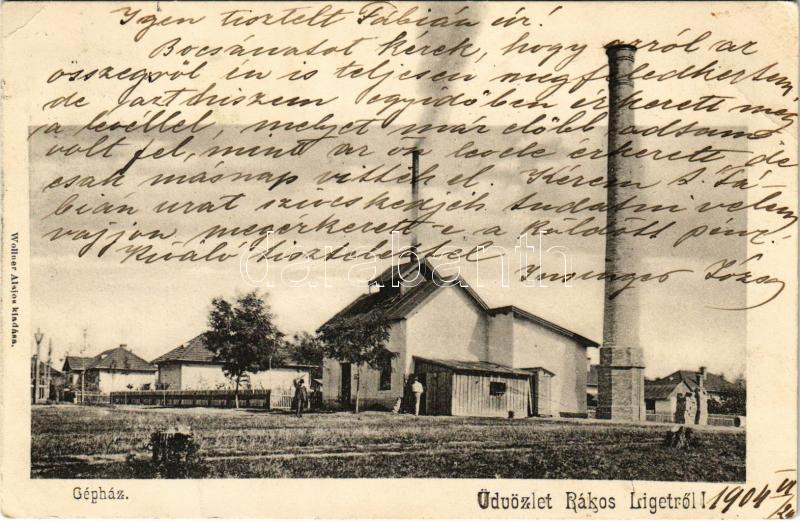 Igen tisztelt Fábián úr!
Bocsánatot kérek, hogy arról az
összegről én is teljesen megfeledkeztem,
de azt hiszem egyidőben érkezett meg
a levéllel, melyet már előbb adtam
volt fel, mint az ön levele érkezett, de
csak másnap vitték el. Kérem S. Fá-
bián urat sziveskedjék tudatni velem
vajjon megérkezett e a küldött pénz.
Kiváló tisztelettel József
darabanth.com
Wollner Alajos kiadása.
Gépház.
Üdvözlet Rákos Ligetről! 1904